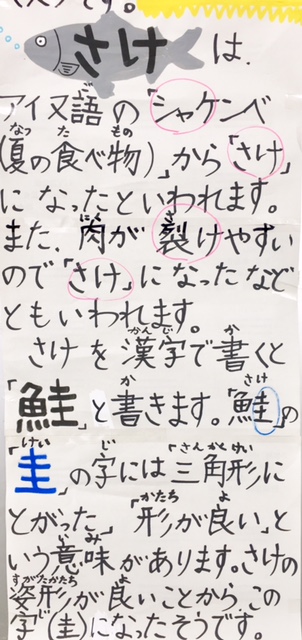 さけは、
アイヌ語の「シャケンベ
(夏の食べ物)」から「さけ」
になったといわれます。
また、肉が裂けやすい
ので「さけ」になったなど
ともいわれます。
さけを漢字で書くと
「鮭」と書きます。「鮭」の
「圭」の字には「三角形に
とがった」「形が良い」と
いう意味があります。さけの
姿形が良いことから、この
字(圭)になったそうです。